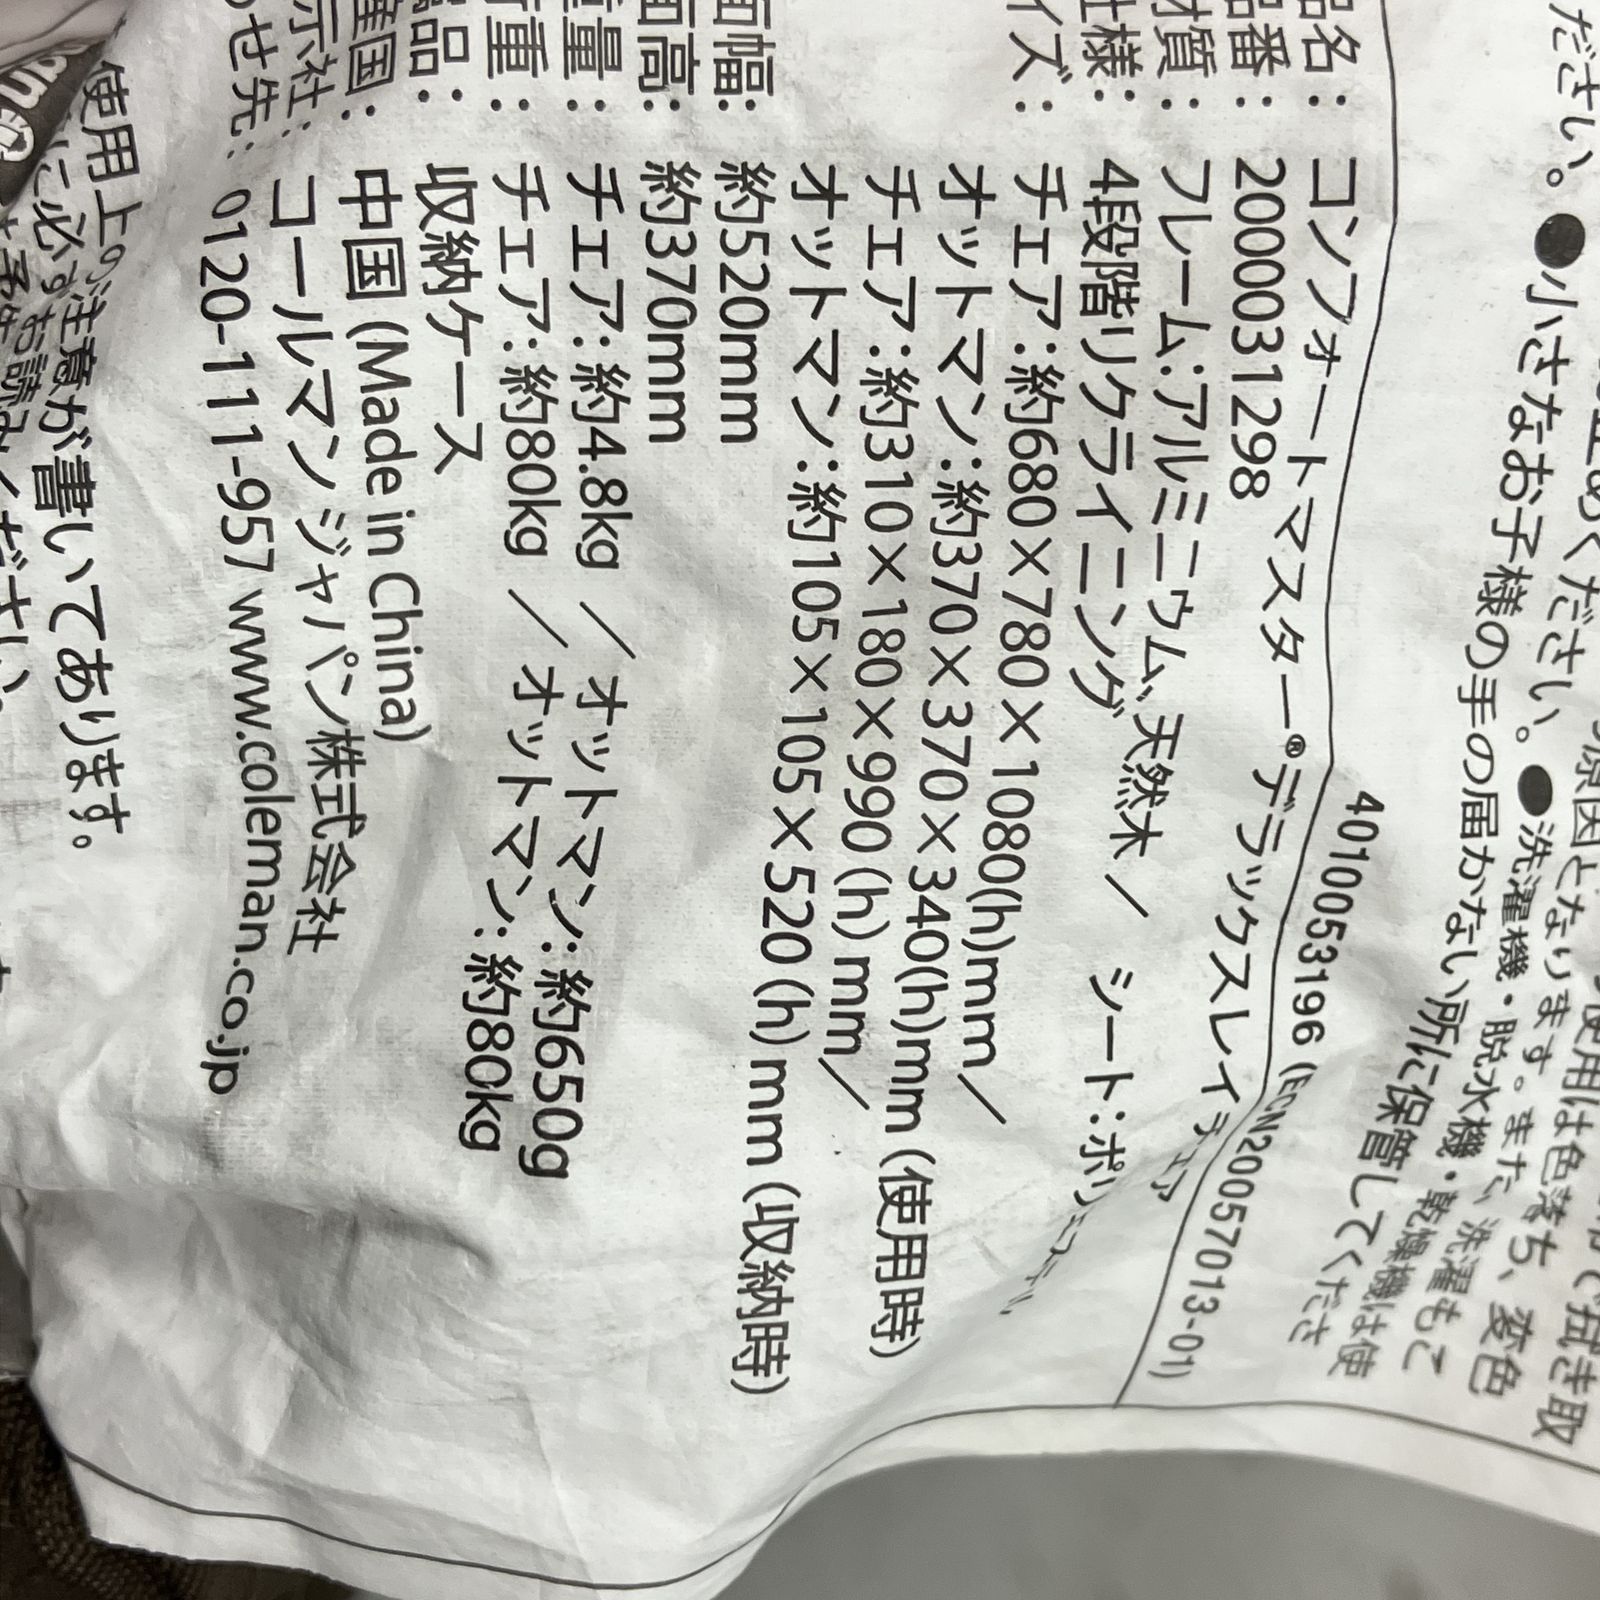 ださい。●小さなお子様の手の届かない所に保管してくださ
4010053196 (ECN20057013-01)
品名：コンフォートマスター®デラックスレイチェア
品番：2000031298
材質：フレーム:アルミニウム、天然木 ／ シート:ポリエステル
仕様：4段階リクライニング
イズ：チェア:約680×780×1080(h)mm／
オットマン:約370×370×340(h)mm (使用時)
チェア:約310×180×990(h)mm／
オットマン:約105×105×520(h)mm (収納時)
面幅：約520mm
面高：約370mm
重量：チェア:約4.8kg ／ オットマン:約650g
荷重：チェア:約80kg ／ オットマン:約80kg
属品：収納ケース
産国：中国 (Made in China)
示社：コールマン ジャパン株式会社
わせ先：0120-111-957 www.coleman.co.jp
使用上の注意が書いてあります。
に必ずお読みください。